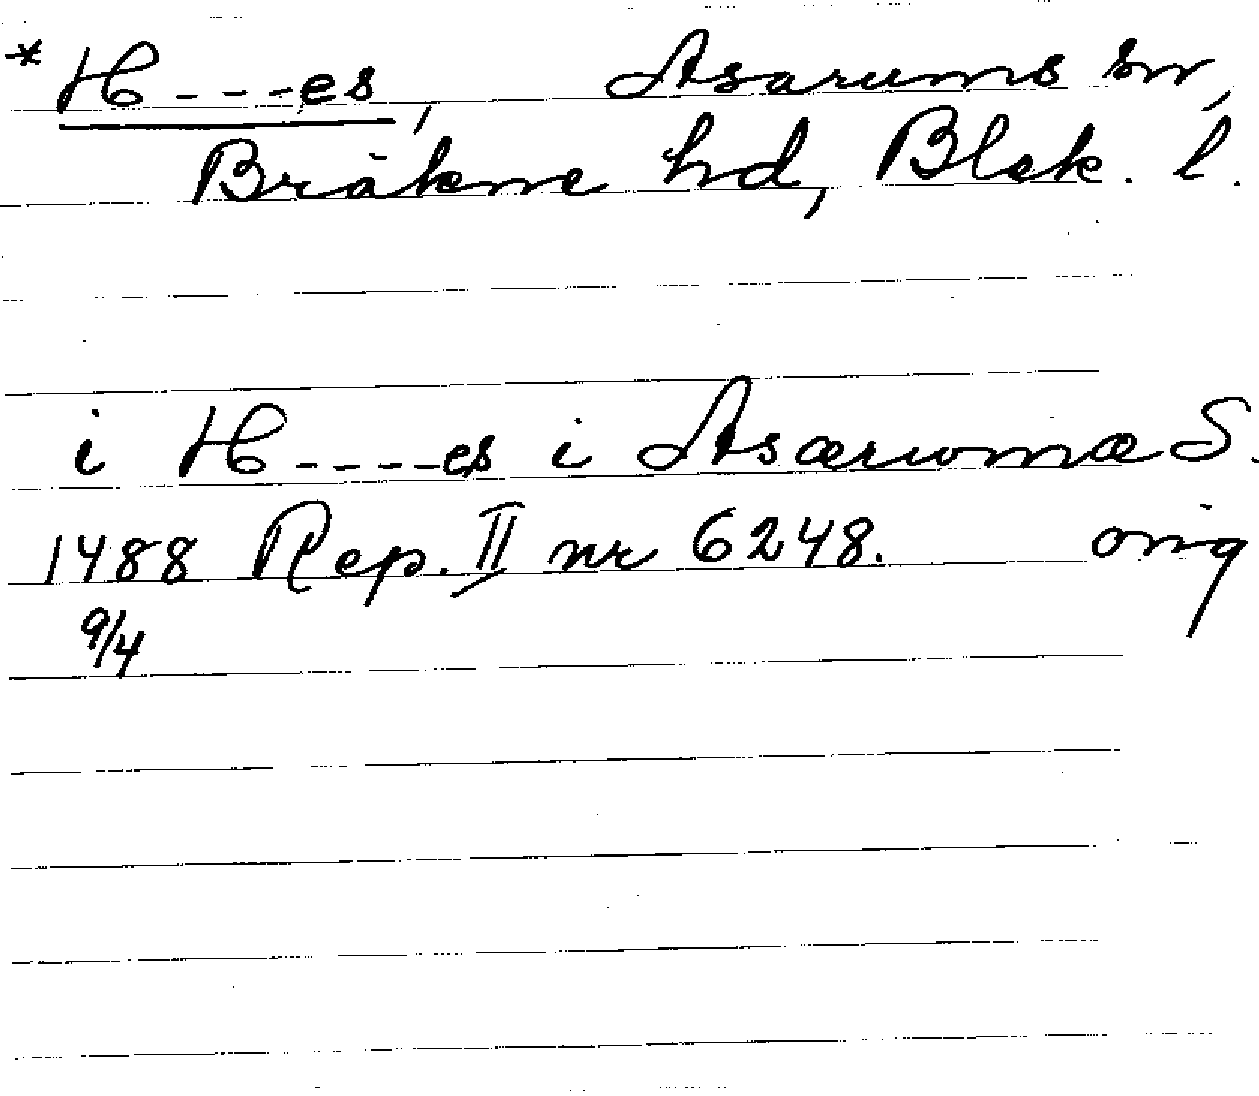 * H - - - es, Asarums sn,
Bräkne hd, Blek. l.
i H - - - - es i Asærumæ S.
1488 Rep. II nr 6248. orig
9/4